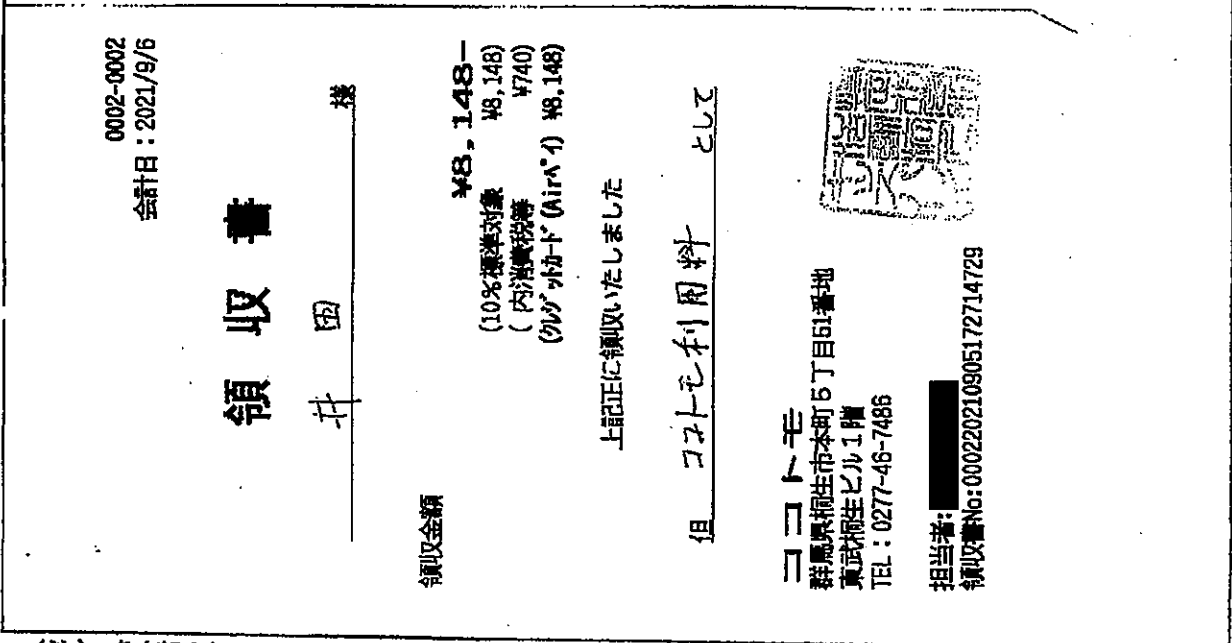 0002-0002
会計日：2021/9/6
領収書
井田 様
領収金額 ¥8,148-
(10%標準対象 ¥8,148)
( 内消費税等 ¥740)
(ｸﾚｼﾞｯﾄｶｰﾄﾞ(Airﾍﾟｲ) ¥8,148)
上記正に領収いたしました
但 ココトモ利用料 として
ココトモ
群馬県桐生市本町５丁目51番地
東武桐生ビル１階
TEL：0277-46-7486
担当者:
領収書No:00022021090517271４729